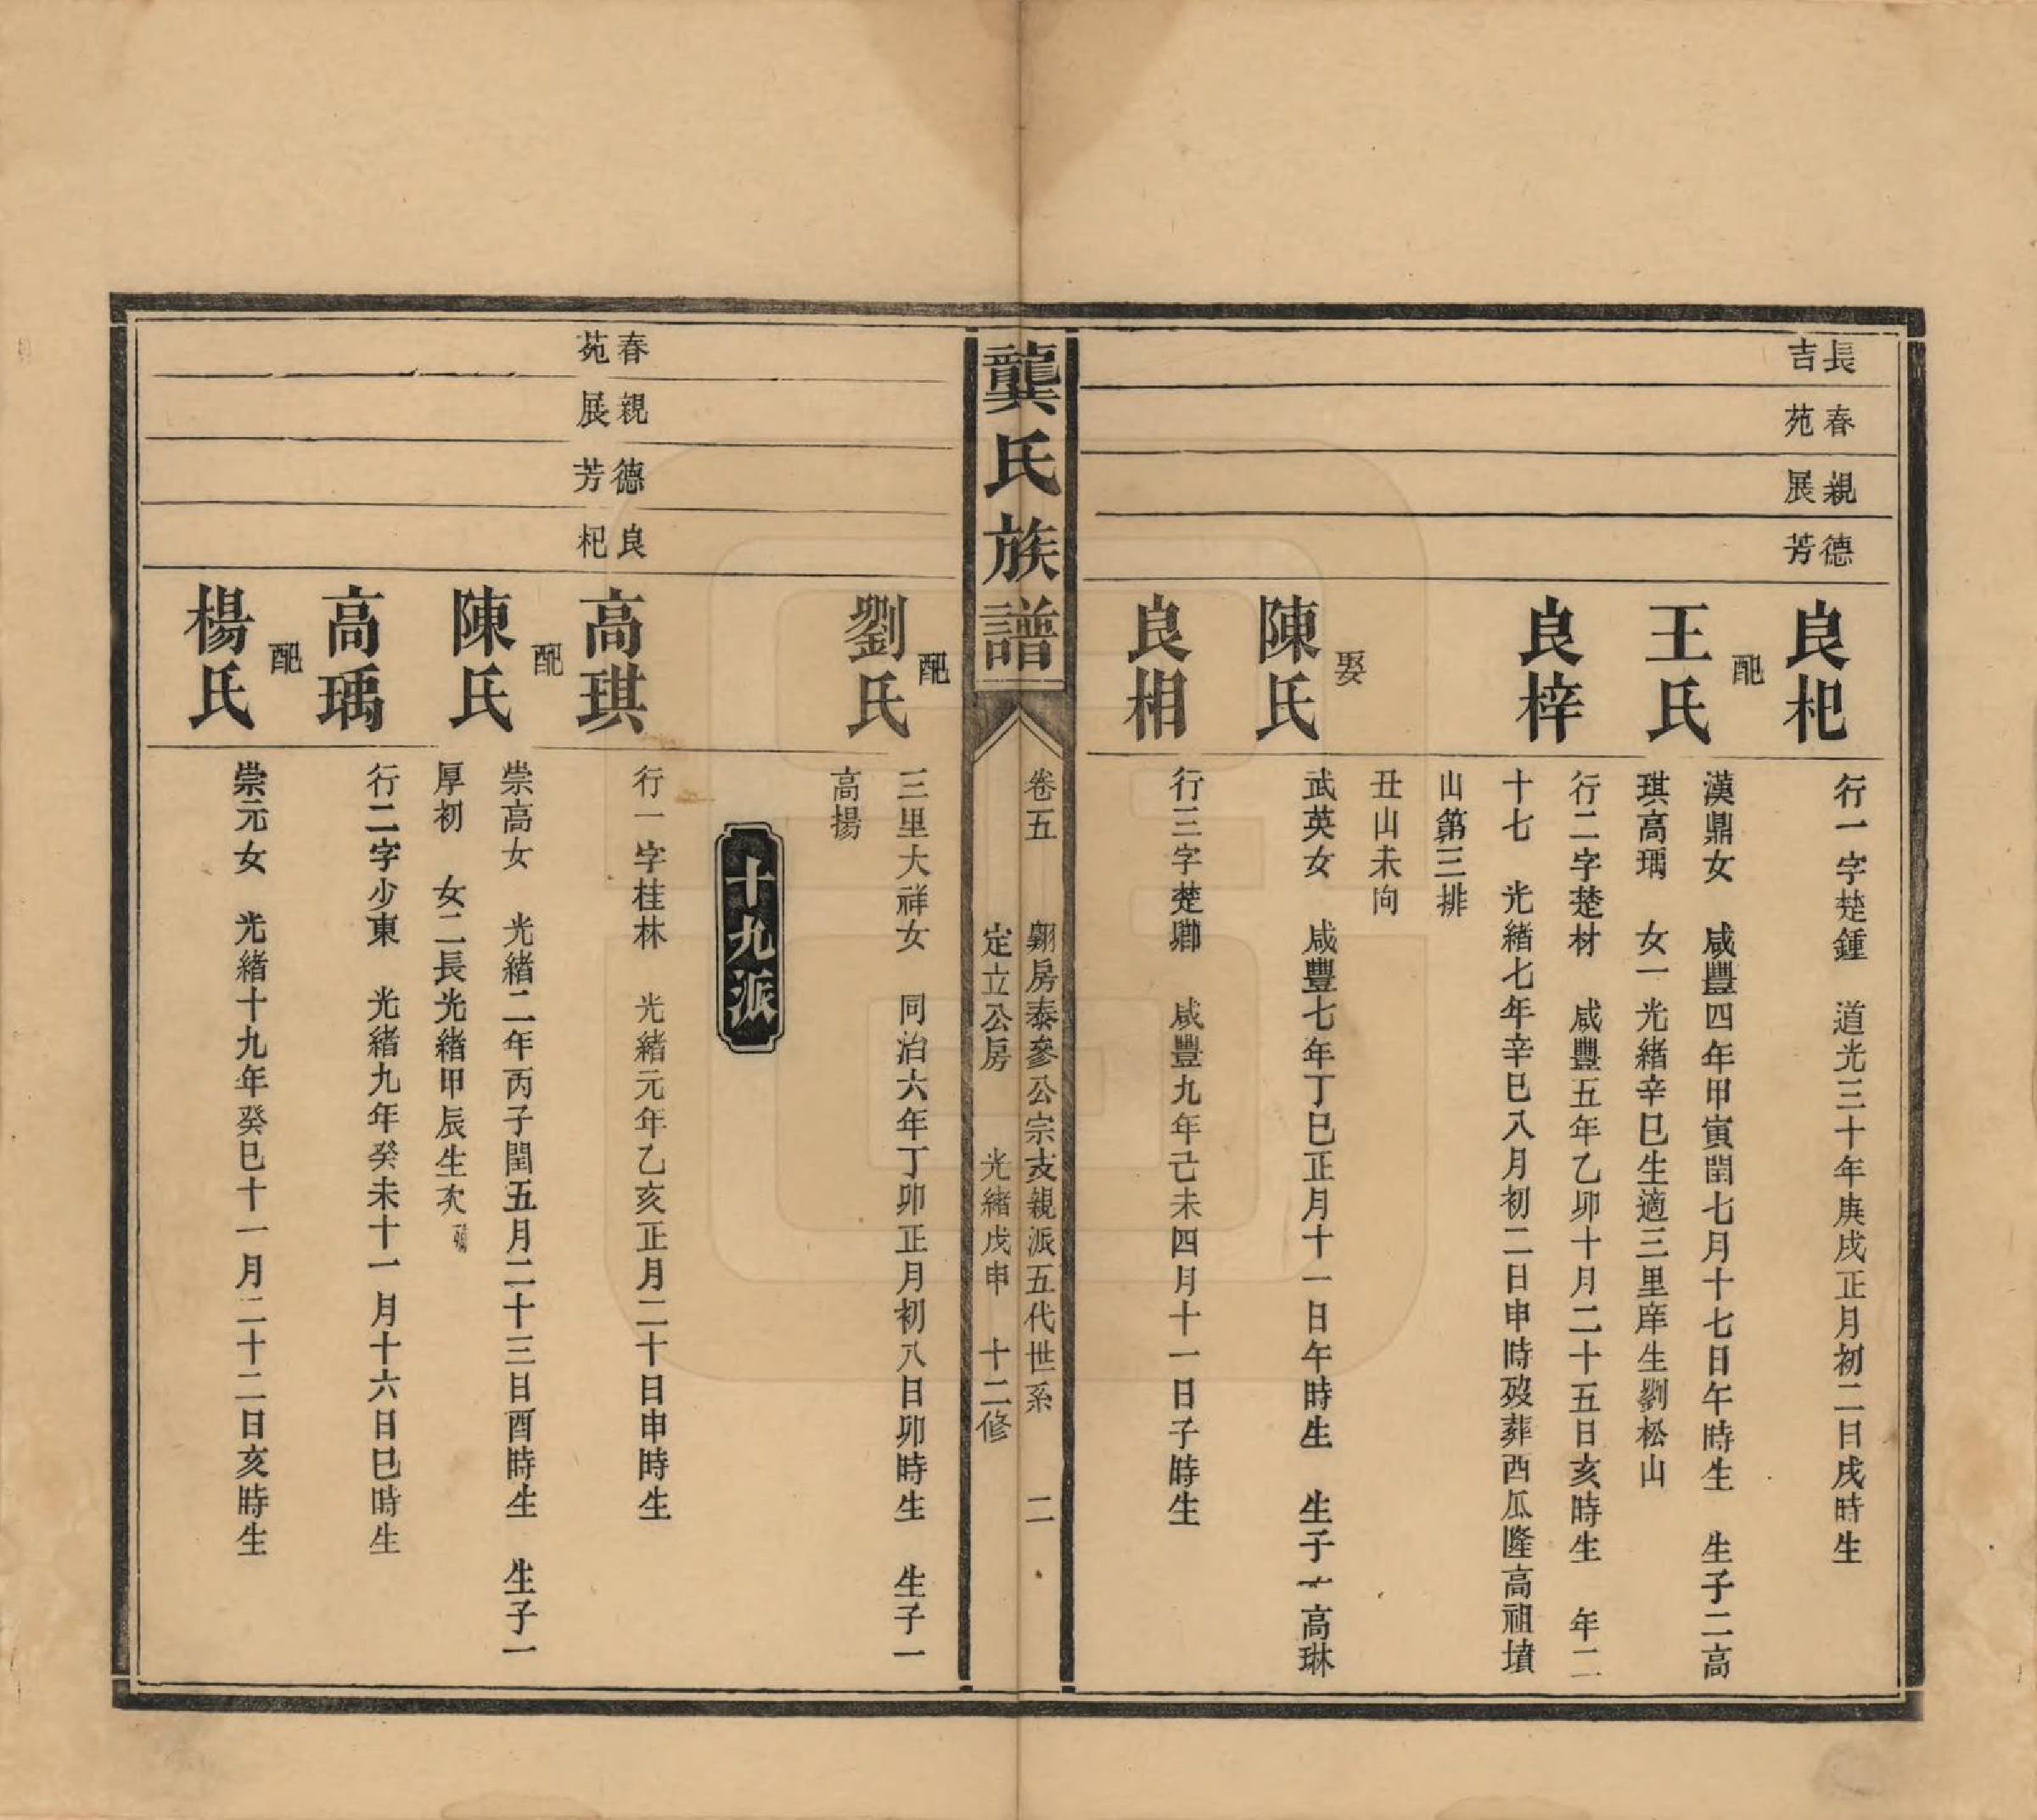 長吉
春苑
親展
德芳
良杞
行一字楚鍾　道光三十年庚戌正月初二日戌時生
配
王氏
漢鼎女　咸豐四年甲寅閏七月十七日午時生　生子二高
琪高瑀　女一光緒辛巳生適三里庠生劉松山
良梓
行二字楚材　咸豐五年乙卯十月二十五日亥時生　年二
十七　光緒七年辛巳八月初二日申時歿葬西瓜隆高祖墳
山第三排
丑山未向
娶
陳氏
武英女　咸豐七年丁巳正月十一日午時生　生子一高琳
良相
行三字楚卿　咸豐九年己未四月十一日子時生
龔氏族譜
卷五　翱房泰參公宗支親派五代世系　二
定立公房　光緒戊申　十二修
配
劉氏
三里大祥女　同治六年丁卯正月初八日卯時生　生子一
高揚
十九派
春苑
親展
德芳
良杞
高琪
行一字桂林　光緒元年乙亥正月二十日申時生
配
陳氏
崇高女　光緒二年丙子閏五月二十三日酉時生　生子一
厚初　女二長光緒甲辰生次
高瑀
行二字少東　光緒九年癸未十一月十六日巳時生
配
楊氏
崇元女　光緒十九年癸巳十一月二十二日亥時生